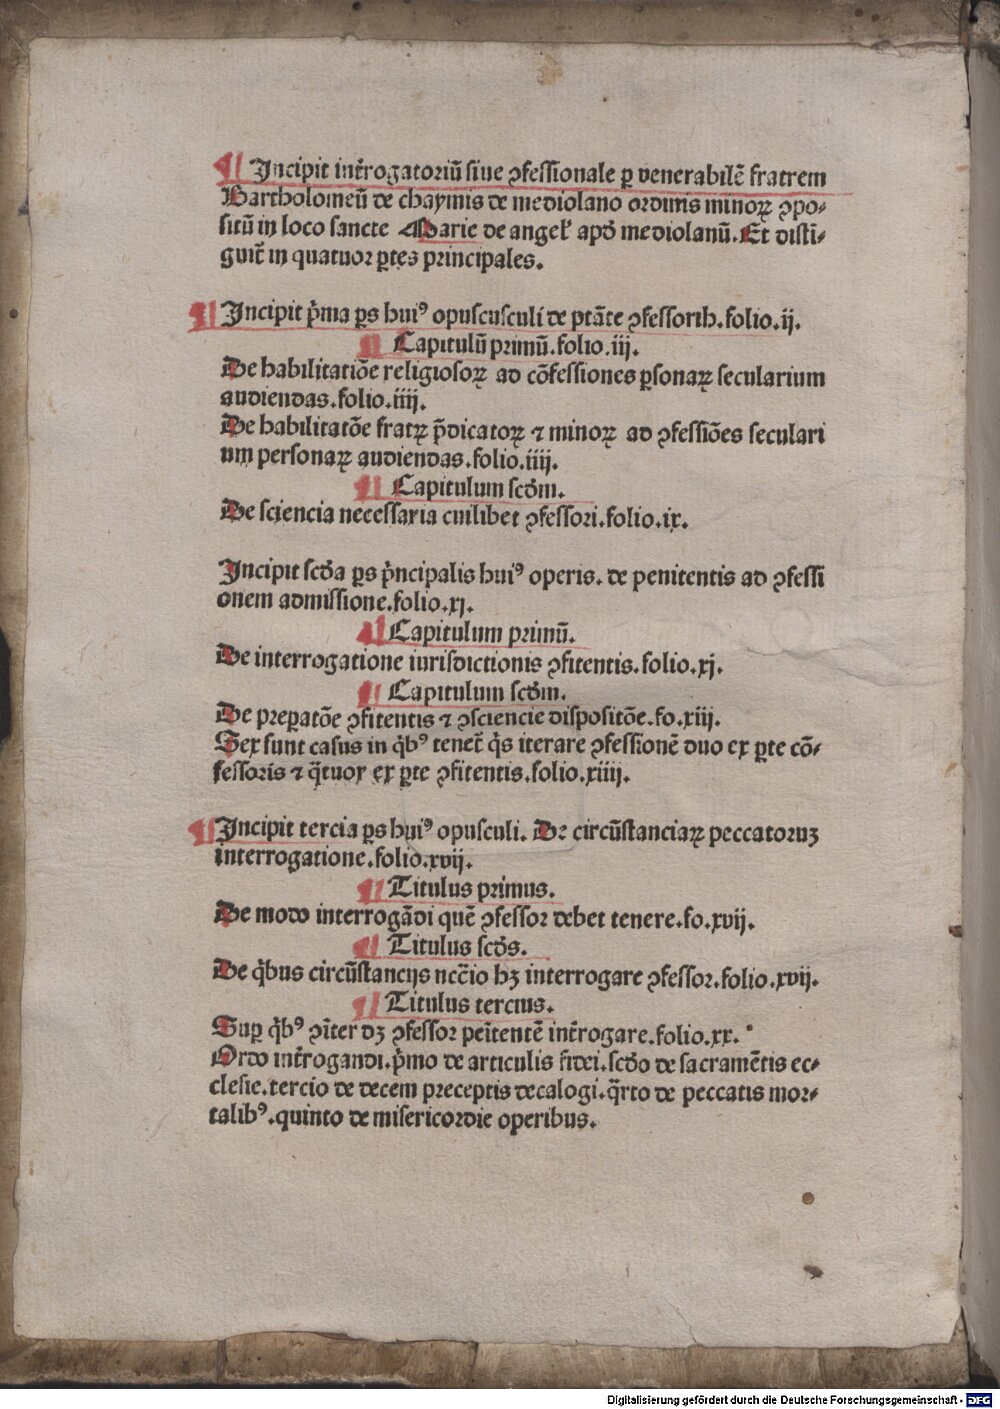 ¶ Incipit int̄rogatoriū siue ꝯfessionale ꝑ venerabilē fratrem
Bartholomeū de chaymis de mediolano ordinis minoꝝ ꝯpo⸗
sitū in loco sancte Marie de angeꝉ apď mediolanū. Et disti̅⸗
guit̄ in quatuor ꝑtes principales.
¶ Incipit p̄ma ꝑs huiꝰ opuscusculi de ptāte ꝯfessorib.folio.ij.
¶ Capitulū primū.folio.iij.
De habilitatiōe religiosoꝝ ad cōfessiones ꝑsonaꝝ secularium
audiendas.folio.iiij.
De habilitatōe fratꝝ p̄dicatoꝝ ⁊ minoꝝ ad ꝯfessiōes seculari
um personaꝝ audiendas.folio.iiij.
¶ Capitulum scďm.
De sciencia necessaria cuilibet ꝯfessori.folio.ix.
Incipit scďa ꝑs p̄ncipalis huiꝰ operis. de penitentis ad ꝯfessi
onem admissione.folio.xj.
¶ Capitulum primū.
De interrogatione iurisdictionis ꝯfitentis.folio.xj.
¶ Capitulum scďm.
De preꝑatōe ꝯfitentis ⁊ ꝯsciencie dispositōe.fo.xiij.
Sex sunt casus in q̇bꝰ tenet̄ q̇s iterare ꝯfessionē duo ex ꝑte cō⸗
fessoris ⁊ q̄tuor ex ꝑte ꝯfitentis.folio.xiiij.
¶ Incipit tercia ꝑs huiꝰ opusculi. De circūstanciaꝝ peccatoruꝫ
interrogatione.folio.xvij.
¶ Titulus primus.
De modo interrogādi quē ꝯfessor debet tenere.fo.xvij.
¶ Titulus scďs.
De q̇bus circūstancijs ncc̄io hꝫ interrogare ꝯfessor.folio.xvij.
¶ Titulus tercius.
Suꝑ q̇bꝰ ꝯīter dꝫ ꝯfessor peīitentē int̄rogare.folio.xx.
Ordo int̄rogandi.p̄mo de articulis fidei.scďo de sacramētis ec⸗
clesie.tercio de decem preceptis decalogi.q̄rto de peccatis mor⸗
talibꝰ.quinto de misericordie operibus.
Digitalisierung gefördert durch die Deutsche Forschungsgemeinschaft - DFG